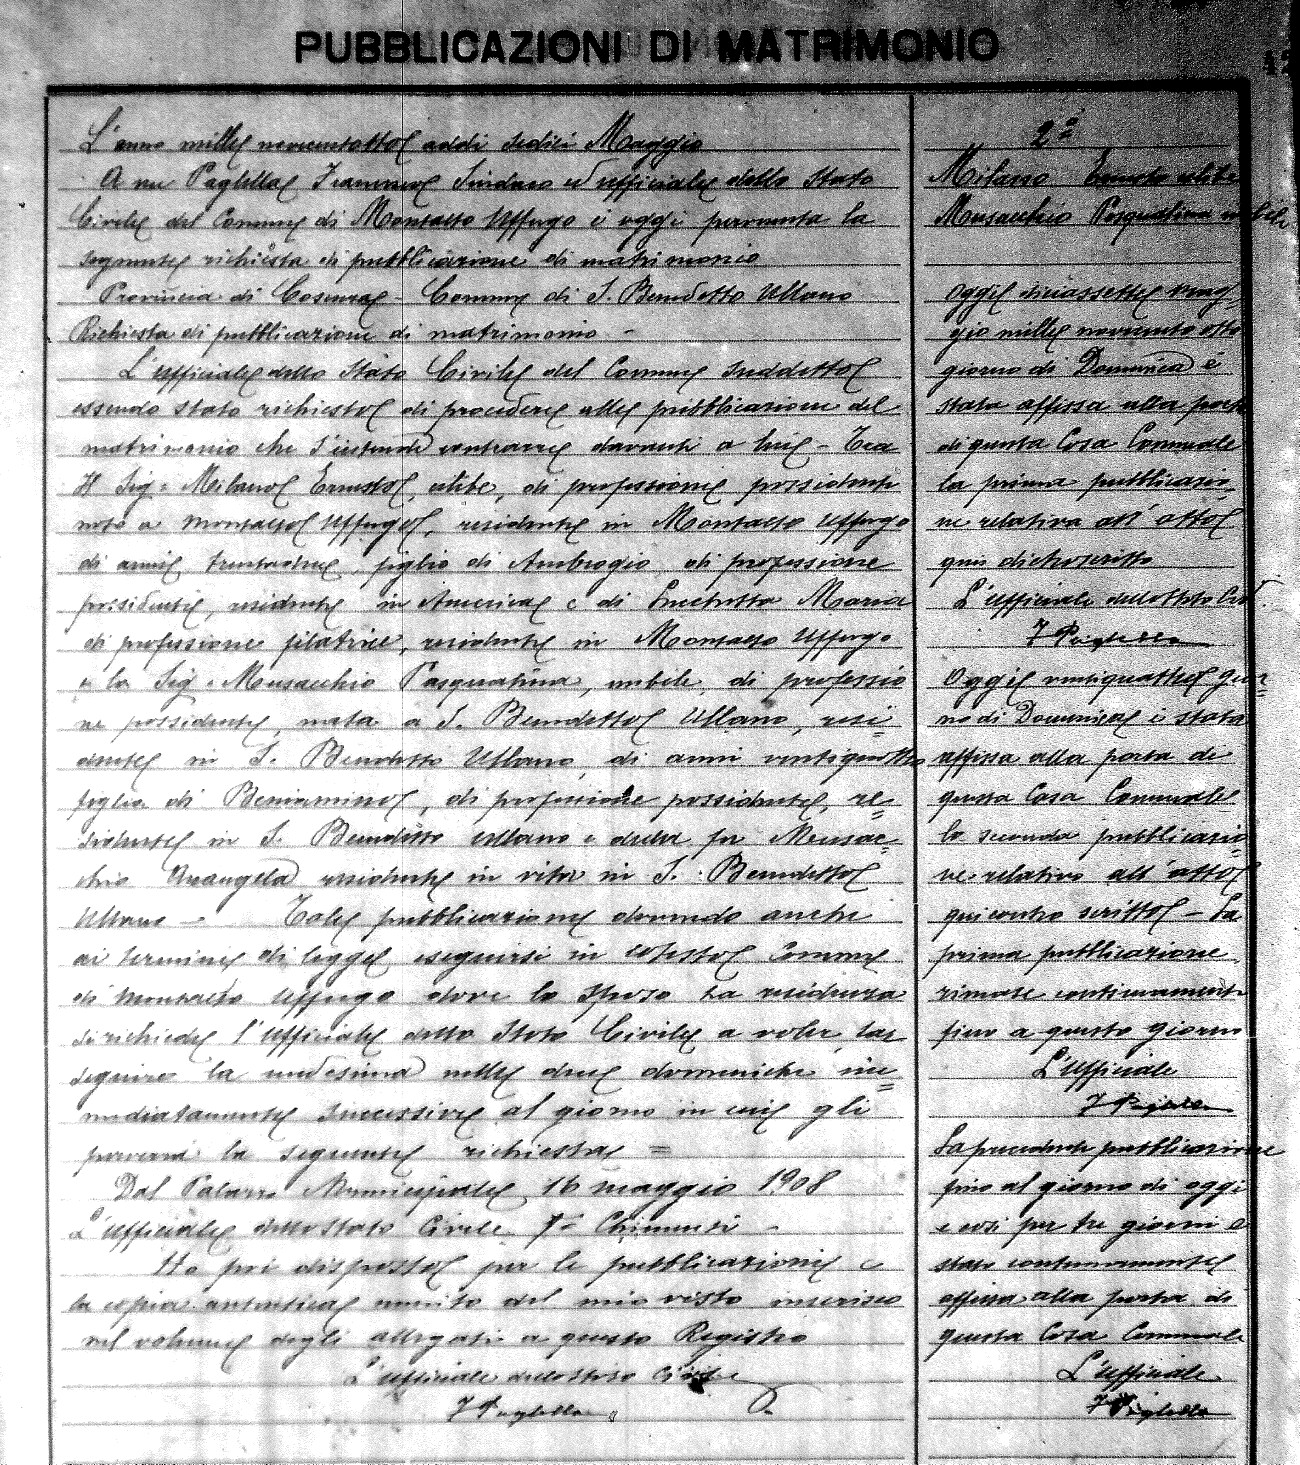 PUBBLICAZIONI DI MATRIMONIO
L'anno mille novecentotto addì sedici Maggio
A me Pugliese Sindaco ed ufficiale dello Stato
Civile del Comune di Montalto Uffugo è oggi pervenuta la
seguente richiesta di pubblicazione di matrimonio
Provincia di Cosenza - Comune di S. Benedetto Ullano
Richiesta di pubblicazione di matrimonio -
L'ufficiale dello Stato Civile del Comune suddetto
essendo stato richiesto di procedere alle pubblicazione del
matrimonio che s'intende contrarre davanti a lui - Tra
Il Sig. Milano Ernesto, celibe, di professione possidente
nato a Montalto Uffugo, residente in Montalto Uffugo
di anni figlio di Ambrogio di professione
possidente, residente in America e di Maria
di professione filatrice, residente in Montalto Uffugo
e la Sig. Musacchio Pasqualina, nubile, di professio
ne possidente, nata a S. Benedetto Ullano, resi=
dente in S. Benedetto Ullano, di anni ventiquattro
figlia di Beniamino, di professione possidente, re=
sidente in S. Benedetto Ullano e della fu Musac=
chio residente in vita in S. Benedetto
Ullano - Tale pubblicazione dovendo anche
ai termini di legge eseguirsi in cotesto Comune
di Montalto Uffugo dove lo sposo ha residenza
si richiede l'ufficiale dello Stato Civile a voler far
seguire la medesima nelle due domeniche im=
mediatamente successive al giorno in cui gli
perverrà la seguente richiesta =
Dal Palazzo Municipale, 16 maggio 1908
L'ufficiale dello Stato Civile
Ho poi disposto per le pubblicazioni e
la copia autentica munita del mio visto inserisco
nel volume degli allegati a questo Registro
L'ufficiale dello Stato Civile
2ª
Milano Ernesto celibe
Musacchio Pasqualina nubile
Oggi diciassette mag-
gio mille novecento otto
giorno di Domenica è
stata affissa alla porta
di questa Casa Comunale
la prima pubblicazio
ne relativa all'atto
qui dietroscritto
L'ufficiale dello Stato Civil
Oggi ventiquattro gior=
no di Domenica è stata
affissa alla porta di
questa Casa Comunale
la seconda pubblicazio=
ne relativa all'atto
qui contro scritto - La
prima pubblicazione
rimase continuamente
fino a questo giorno
L'ufficiale
La precedente pubblicazione
fino al giorno di oggi
e così per tre giorni è
stata continuamente
affissa alla porta di
questa Casa Comunale
L'ufficiale